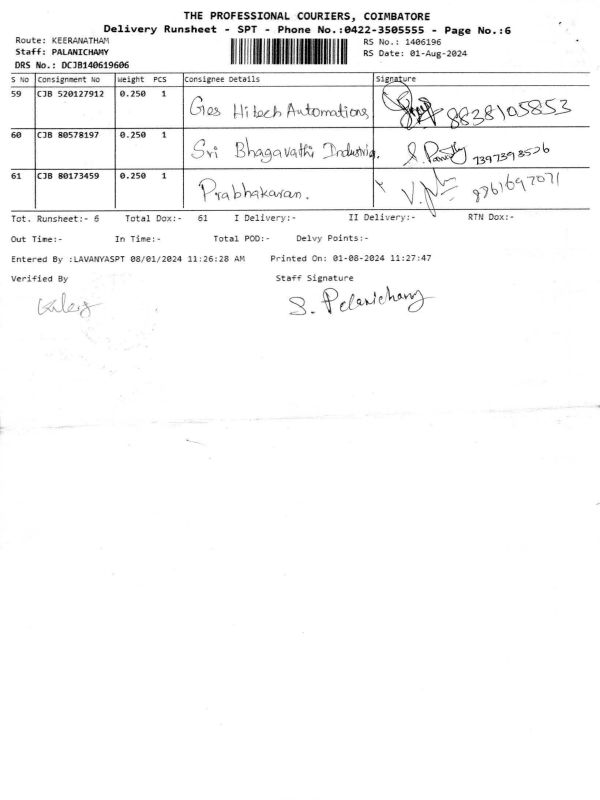 THE PROFESSIONAL COURIERS, COIMBATORE
Delivery Runsheet - SPT - Phone No.:0422-3505555 - Page No.:6
Route: KEERANATHAM RS No.: 1406196
Staff: PALANICHAMY RS Date: 01-Aug-2024
DRS No.: DCJB140619606
S No Consignment No Weight PCS Consignee Details Signature
59 CJB 520127912 0.250 1 Ges Hitech Automations 8838105853
60 CJB 80578197 0.250 1 Sri Bhagavathi Industries. 7397393526
61 CJB 80173459 0.250 1 Prabhakaran.
Tot. Runsheet:- 6 Total Dox:- 61 I Delivery:- II Delivery:- RTN Dox:-
Out Time:- In Time:- Total POD:- Delvy Points:-
Entered By :LAVANYASPT 08/01/2024 11:26:28 AM Printed On: 01-08-2024 11:27:47
Verified By Staff Signature
S. Pelanichamy